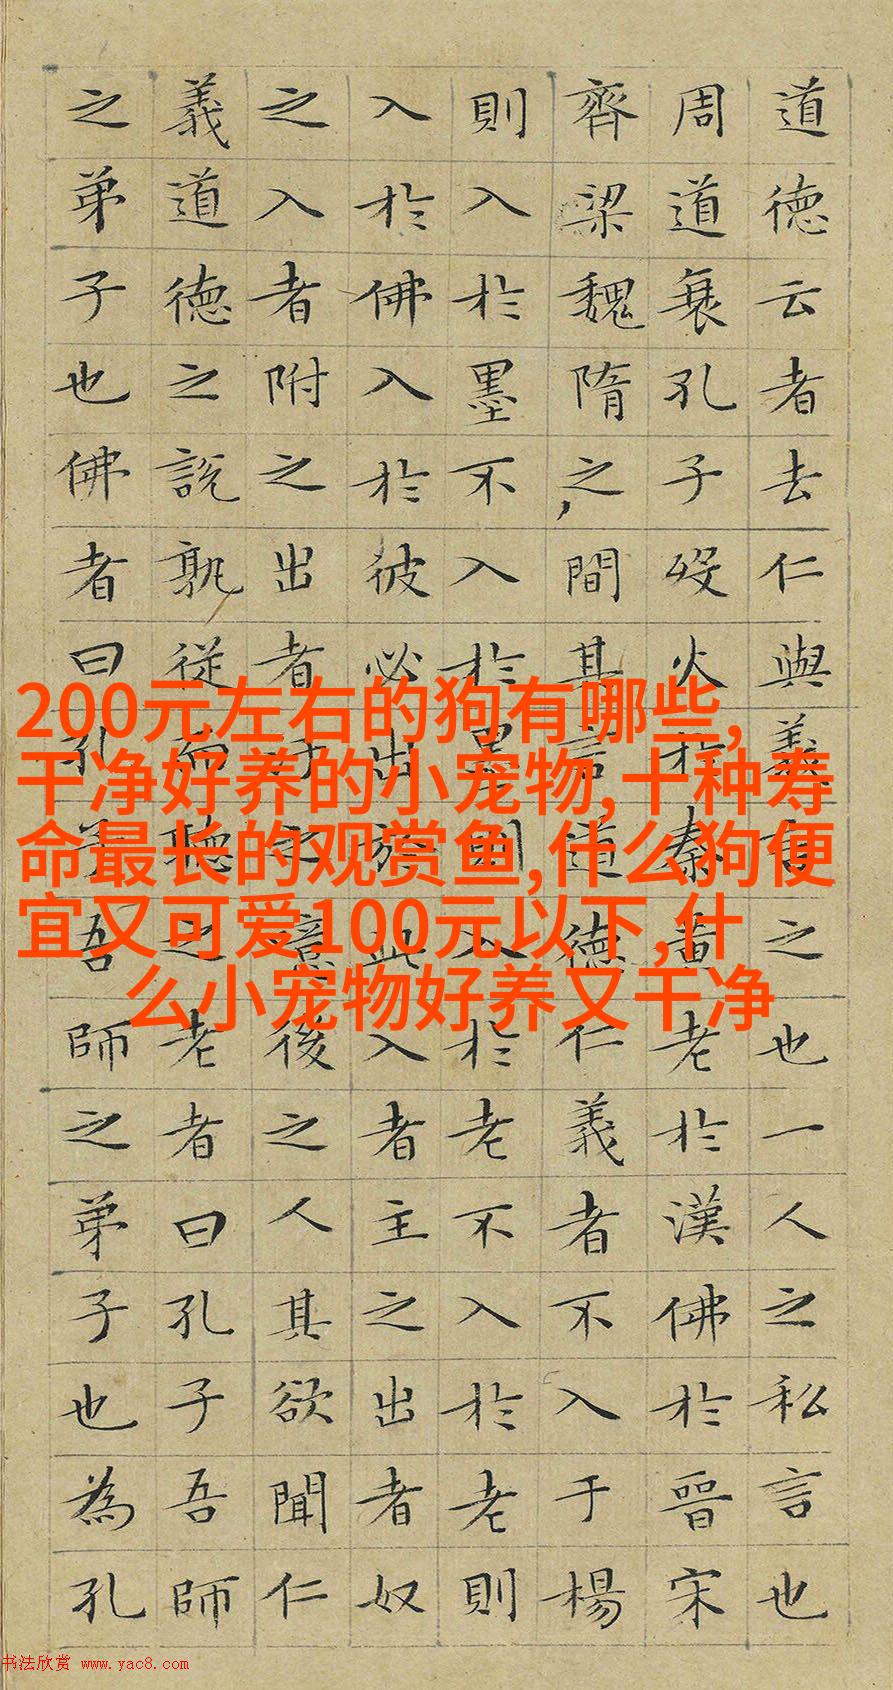 道德云者去仁與義言之也一人之私言也
周道衰孔子歿火於秦黄老於漢佛於晉宋
齊梁魏隋之間其言道德仁義者不入于楊
則入於墨不入於墨則入於老不入於老則
入於佛入於彼必出於此入者主之出者奴
之入者附之出者汙之噫後之人其欲聞仁
義道德之説孰從而聽之老者曰孔子吾師
之弟子也佛者曰孔子吾師之弟子也為孔
200元左右的狗有哪些,
干净好养的小宠物,十种寿
命最长的观赏鱼,什么狗便
宜又可爱100元以下,什
么小宠物好养又干净
书法欣赏 www.yac8.com